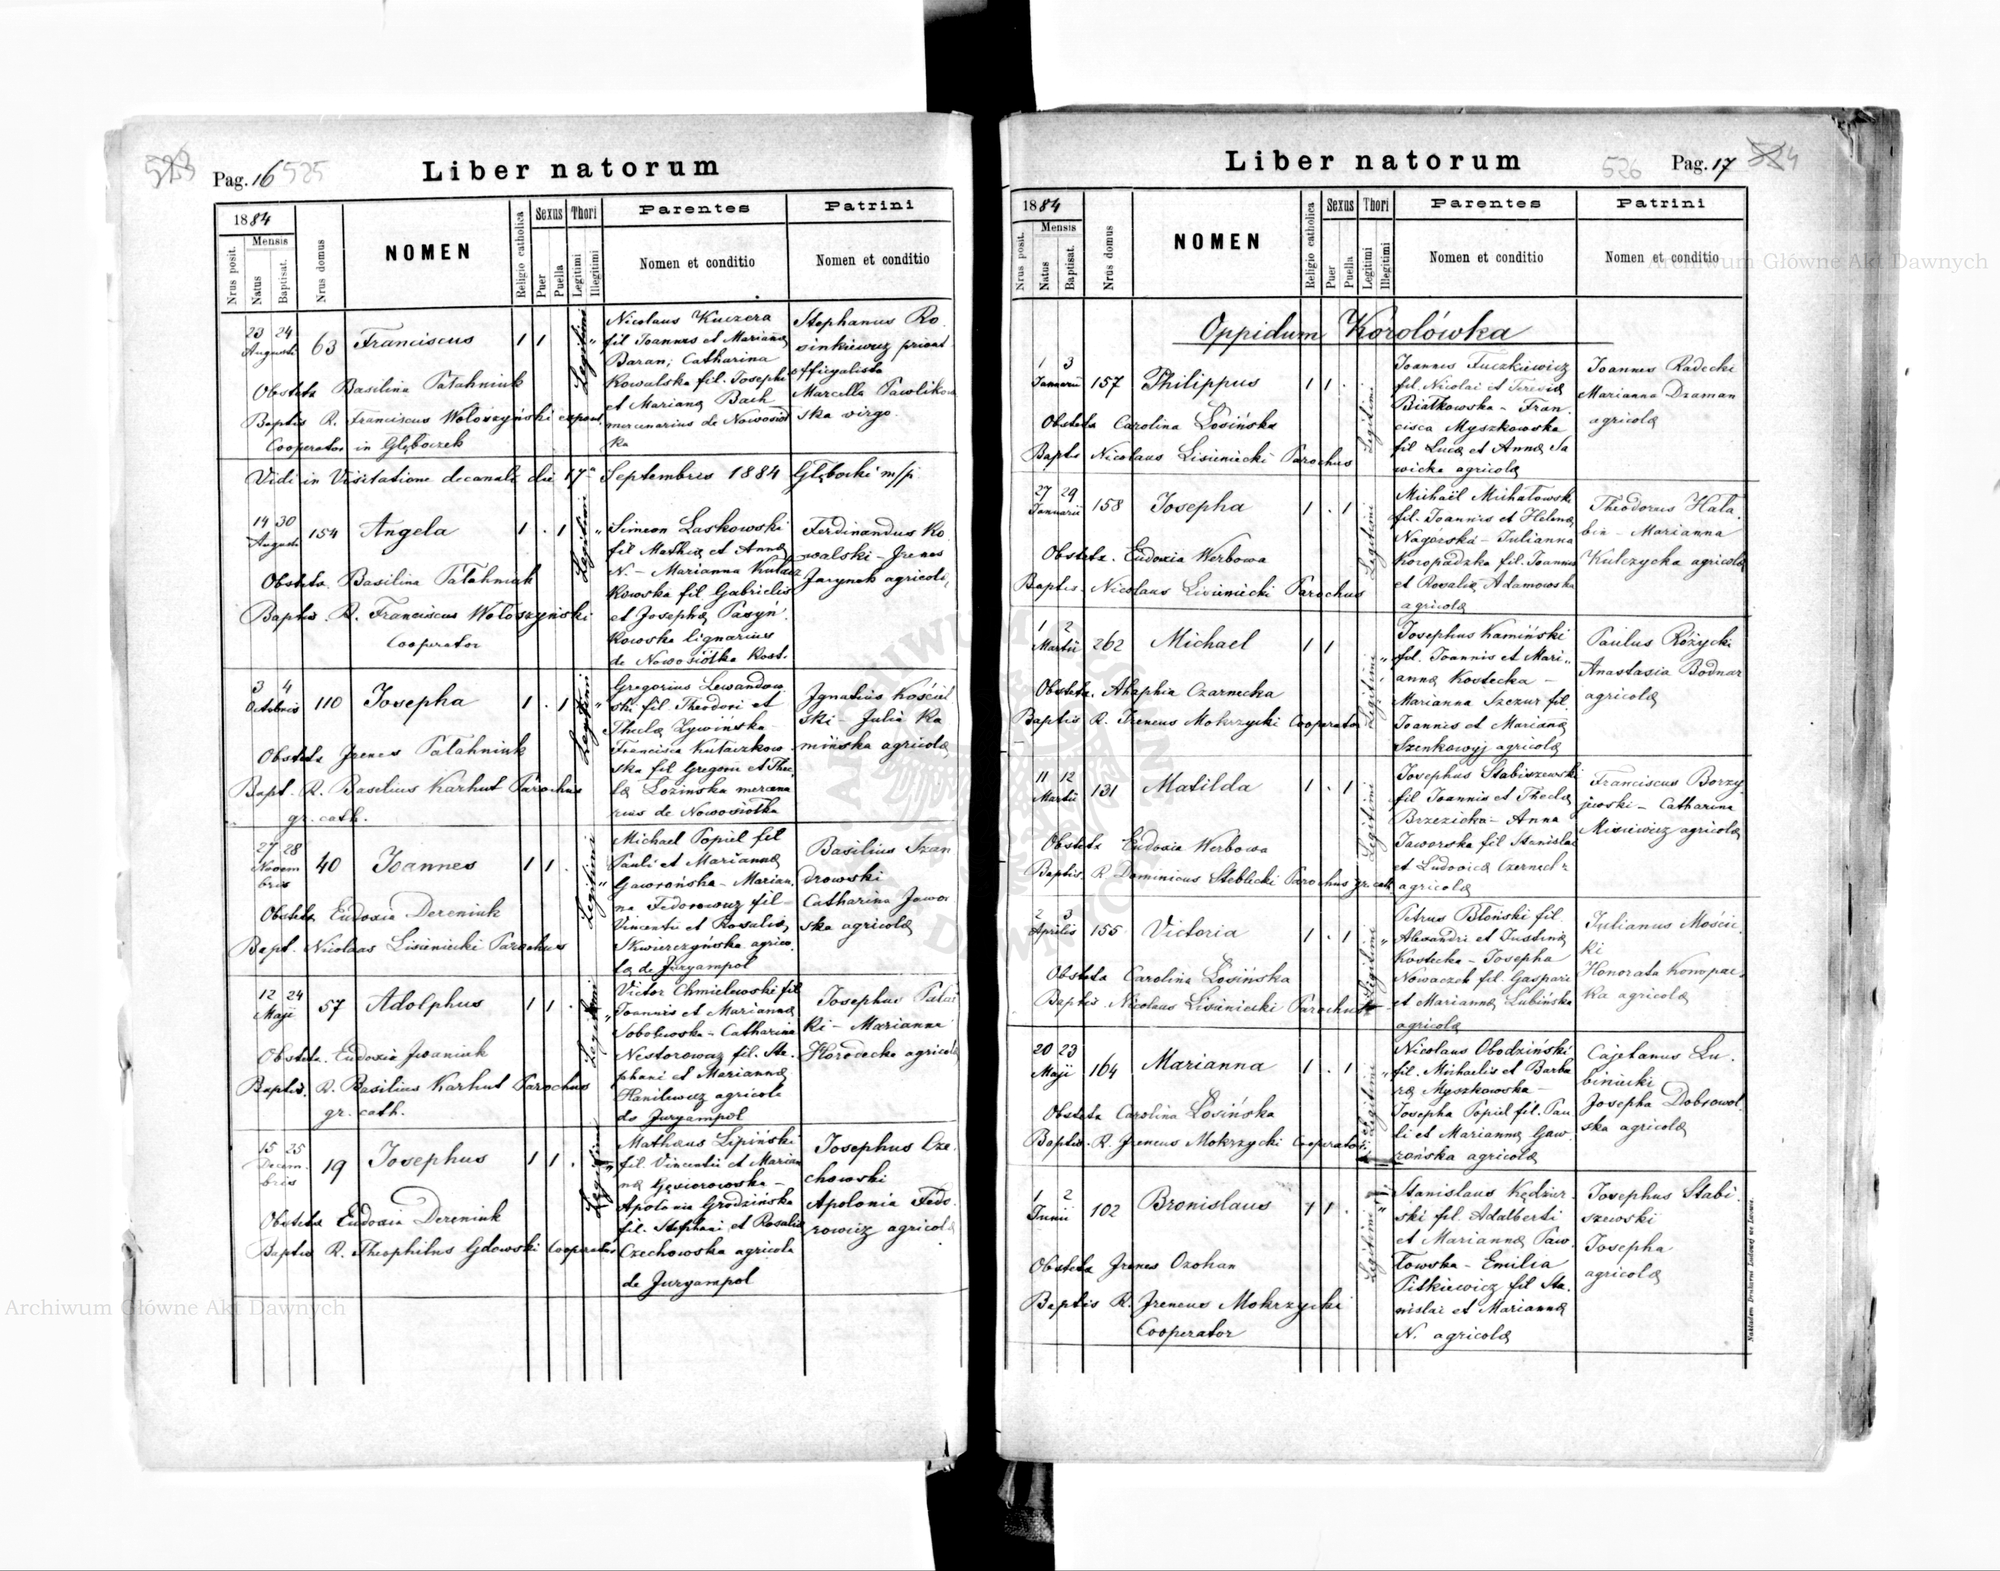 523
Pag. 16 525
Liber natorum
1884
Nrus posit.
Mensis
Natus
Baptisat.
Nrus domus
NOMEN
Religio catholica
Sexus
Puer
Puella
Thori
Legitimi
Illegitimi
Parentes
Nomen et conditio
Patrini
Nomen et conditio
23 24
Augusti
63 Franciscus 1 1
Legitimi
Obsteta Basilina Patahniuk
Baptis R. Franciscus Wołoszyński exponi.
Cooperator in Głęboczek
Nicolaus Kuczera
fil Joannis et Marianæ
Baran; Catharina
Kowalska fil. Josephi
et Marianæ Bach
mercenarius de Nowosiół
ka
Stephanus Ro
sinkiewicz privat
officyalista
Marcella Pawlikow
ska virgo.
Vidi in Visitatione decanali die 17a Septembris 1884 Głębocki m/p
14 30
Augusti
154 Angela 1 . 1
Legitimi
Obsteta Basilina Patahniuk
Baptis R. Franciscus Wołoszyński
Cooperator
Simeon Laskowski
fil Mathiæ et Annæ
N. - Marianna Kulacz
kowska fil. Gabrielis
et Josephæ Pasyń
kowska lignarius
de Nowosiółka Kost.
Ferdinandus Ko
walski - Irenes
Jarynek agricolæ
3 4
Octobris
110 Josepha 1 . 1
Legitimi
Obsteta Irenes Patahniuk
Bapt. R. Basilius Karhut Parochus
gr. cath.
Gregorius Lewandow
ski fil. Theodori et
Theclæ Żywińska
Francisca Kulaczkow
ska fil Gregorii et Thec
læ Łozinska mercena
rius de Nowosiółka
Ignatius Kościel
ski - Julia Ka
mińska agricolæ
27 28
Novem
bris
40 Joannes 1 1 .
Legitimi
Obsteta Eudoxia Dereniuk
Bapt. Nicolaus Lisieniecki Parochus
Michael Popiel fil
Pauli et Mariannæ
Gaworońska - Marian
na Fedorowicz fil -
Vincentii et Rosaliæ
Skwierczyńska agrico
læ de Juryampol
Basilius Szan
drowski
Catharina Jawor
ska agricolæ
12 24
Maji
57 Adolphus 1 1 .
Legitimi
Obsteta Eudoxia Iwaniuk
Baptis. R. Basilius Karhut Parochus
gr. cath.
Victor Chmielewski fil
Joannis et Mariannæ
Sobolewska - Catharina
Nestorowicz fil. Ste.
phani et Mariannæ
Hanilewicz agricolæ
de Juryampol
Josephus Pałac
ki - Marianna
Horodecka agricolæ
15 25
Decem
bris
19 Josephus 1 1 .
Legitimi
Obsteta Eudoxia Dereniuk
Baptis R. Theophilus Gdowski Cooperator
Mathæus Lipiński
fil. Vincentii et Marian
næ Gęsiorowska -
Apolonia Grodzińska
fil. Stephani et Rosaliæ
Czechowska agricolæ
de Juryampol
Josephus Cze
chowski
Apolonia Fedo
rowicz agricolæ
Liber natorum
526
Pag. 17 524
1884
Nrus posit.
Mensis
Natus
Baptisat.
Nrus domus
NOMEN
Religio catholica
Sexus
Puer
Puella
Thori
Legitimi
Illegitimi
Parentes
Nomen et conditio
Patrini
Nomen et conditio
Oppidum Korolówka
1 3
Januarii
157 Philippus 1 1 .
Legitimi
Obsteta Carolina Łosińska
Baptis Nicolaus Lisieniecki Parochus
Joannes Fuczkiewicz
fil Nicolai et Teresiæ
Białkowska - Fran
cisca Myszkowska
fil Lucæ et Annæ Sa
wicka agricolæ
Joannes Radecki
Marianna Draman
agricolæ
27 29
Januarii
158 Josepha 1 . 1
Legitimi
Obsteta. Eudoxia Werbowa
Baptis. Nicolaus Lisieniecki Parochus
Michaël Michałowski
fil. Joannis et Helenæ
Nagórska - Julianna
Koropadzka fil. Joannis
et Rosaliæ Adamowska
agricolæ
Theodorus Hała
bin - Marianna
Kulczycka agricolæ
1 2
Martii
262 Michael 1 1
Legitimi
Obsteta. Ahaphia Czarnecka
Baptis R. Ireneus Mokrzycki Cooperator
Josephus Kamiński
fil. Joannis et Mari
annæ Kostecka -
Marianna Szczur fil.
Joannis et Marianæ
Szenkowyj agricolæ
Paulus Różycki
Anastasia Bodnar
agricolæ
11 12
Martii
131 Matilda 1 . 1
Legitimi
Obsteta Eudoxia Werbowa
Baptis. R Dominicus Steblecki Parochus gr. cath
Josephus Stabiszewski
fil Joannis et Theclæ
Brzezicka - Anna
Jaworska fil Stanislai
et Ludovicæ Czernech
agricolæ
Franciscus Borzy
jewski - Catharina
Misiewicz agricolæ
2 3
Aprilis
155 Victoria 1 . 1
Legitimi
Obsteta Carolina Łosińska
Baptis Nicolaus Lisieniecki Parochus
Petrus Błoński fil.
Alexandri et Justinæ
Kostecka - Josepha
Nowaczek fil. Gaspari
et Mariannæ Lubińska
agricolæ
Julianus Mościc
ki
Honorata Konopac
ka agricolæ
20 23
Maji
164 Marianna 1 . 1
Legitimi
Obsteta Carolina Łosińska
Baptis. R. Ireneus Mokrzycki Cooperator
Nicolaus Obodziński
fil. Michaelis et Barba
ræ Myszkowska -
Josepha Popiel fil. Pau
li et Mariannæ Gaw
rońska agricolæ
Cajetanus Lu
biniecki
Josepha Dobrowol
ska agricolæ
1 2
Junii
102 Bronislaus 1 1 .
Legitimi
Obsteta Irenes Ozohan
Baptis R. Ireneus Mokrzycki
Cooperator
Stanislaus Kędzier
ski fil. Adalberti
et Mariannæ Paw
łowska - Emilia
Pitkiewicz fil Sta
nislai et Mariannæ
N. agricolæ
Josephus Stabi
szewski
Josepha
agricolæ
Nakładem Drukarni Ludowej we Lwowie.
Archiwum Główne Akt Dawnych
Archiwum Główne Akt Dawnych
ARCHIWUM GŁÓWNE AKT DAWNYCH